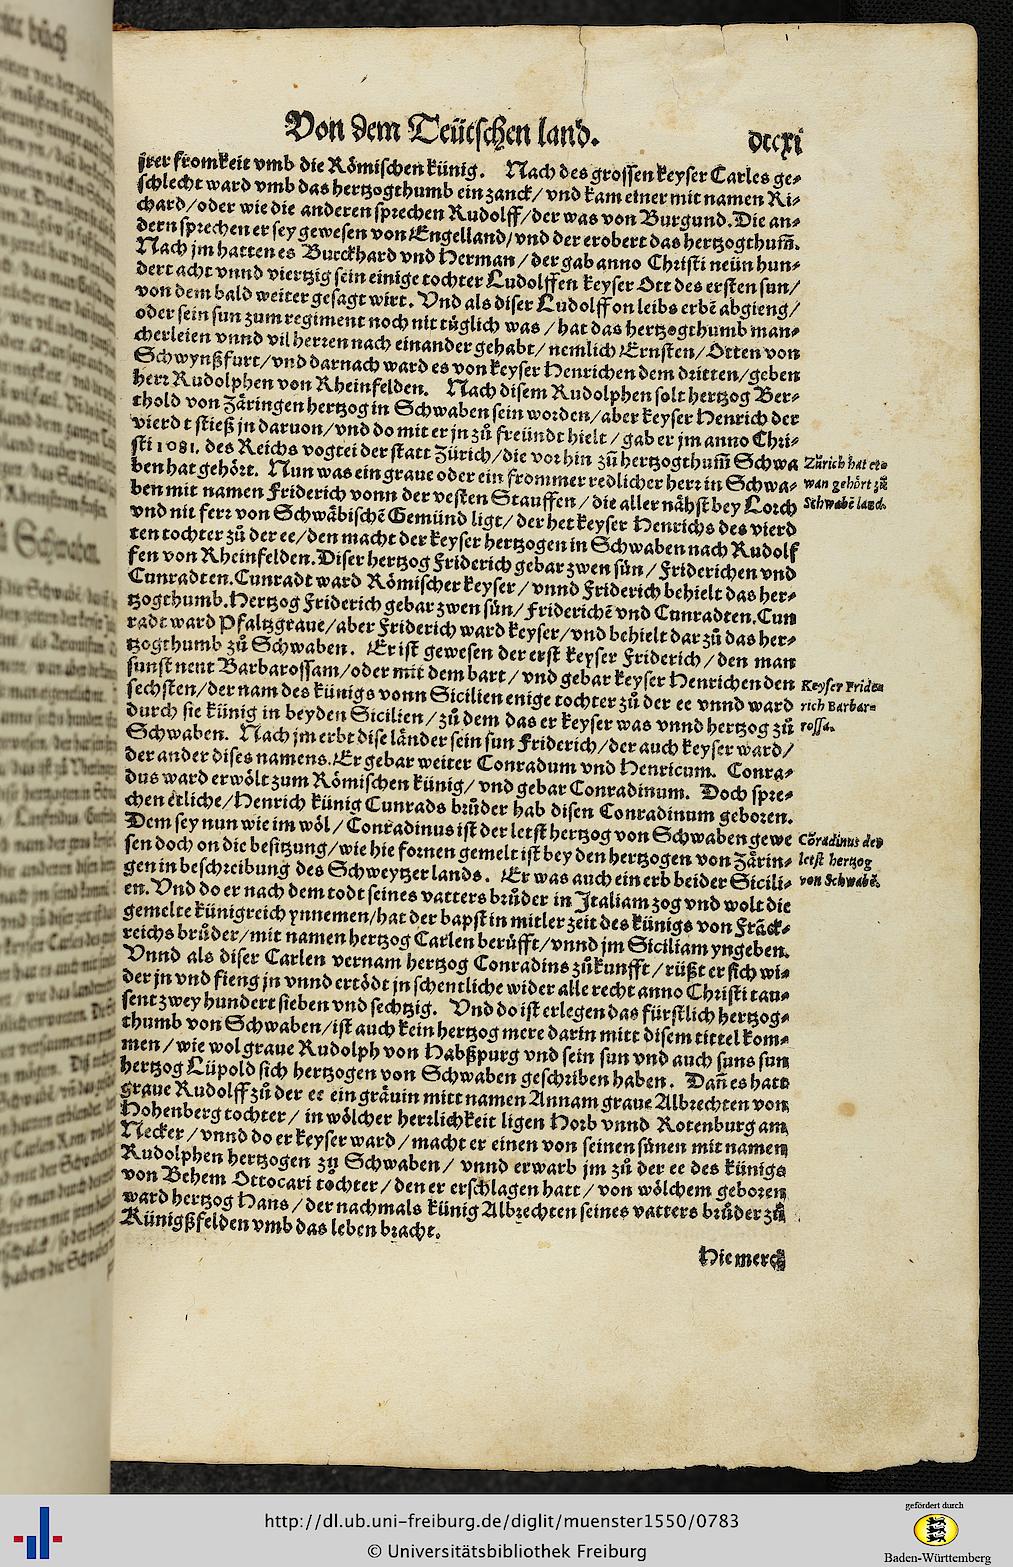 Von dem Teütschen land. dccxi
jrer fromkeit vmb die Römischen künig. Nach des grossen keyser Carles ge⸗
schlecht ward vmb das hertzogthumb ein zanck/ vnd kam einer mit namen Ri⸗
chard/ oder wie die anderen sprechen Rudolff/ der was von Burgund. Die an⸗
dern sprechen er sey gewesen von Engelland/ vnd der erobert das hertzogthum̄.
Nach jm hatten es Burckhard vnd Herman/ der gab anno Christi neün hun⸗
dert acht vnnd viertzig sein einige tochter Ludolffen keyser Ott des ersten sun/
von dem bald weiter gesagt wirt. Vnd als diser Ludolff on leibs erbē abgieng/
oder sein sun zum regiment noch nit tüglich was/ hat das hertzogthumb man⸗
cherleien vnnd vil herren nach einander gehabt/ nemlich Ernsten/ Otten von
Schwynßfurt/ vnd darnach ward es von keyser Henrichen dem dritten/ geben
herr Rudolphen von Rheinfelden. Nach disem Rudolphen solt hertzog Ber⸗
thold von Zäringen hertzog in Schwaben sein worden/ aber keyser Henrich der
vierd t stieß jn daruon/ vnd do mit er jn zů freündt hielt/ gab er jm anno Chri⸗
sti 1081. des Reichs vogtei der statt Zürich/ die vorhin zů hertzogthum̄ Schwa
ben hat gehört. Nun was ein graue oder ein frommer redlicher herr in Schwa⸗
ben mit namen Friderich vonn der vesten Stauffen/ die aller nähst bey Lorch
vnd nit ferr von Schwäbischē Gemünd ligt/ der het keyser Henrichs des vierd
ten tochter zů der ee/ den macht der keyser hertzogen in Schwaben nach Rudolf
fen von Rheinfelden. Diser hertzog Friderich gebar zwen sün/ Friderichen vnd
Cunradten. Cunradt ward Römischer keyser/ vnnd Friderich behielt das her⸗
tzogthumb. Hertzog Friderich gebar zwen sün/ Friderichē vnd Cunradten. Cun
radt ward Pfaltzgraue/ aber Friderich ward keyser/ vnd behielt dar zů das her⸗
tzogthumb zů Schwaben. Er ist gewesen der erst keyser Friderich/ den man
sunst nent Barbarossam/ oder mit dem bart/ vnd gebar keyser Henrichen den
sechsten/ der nam des künigs vonn Sicilien enige tochter zů der ee vnnd ward
durch sie künig in beyden Sicilien/ zů dem das er keyser was vnnd hertzog zů
Schwaben. Nach jm erbt dise länder sein sun Friderich/ der auch keyser ward/
der ander dises namens. Er gebar weiter Conradum vnd Henricum. Conra⸗
dus ward erwölt zum Römischen künig/ vnd gebar Conradinum. Doch spre⸗
chen etliche/ Henrich künig Cunrads brůder hab disen Conradinum geboren.
Dem sey nun wie im wöl/ Conradinus ist der letst hertzog von Schwaben gewe
sen doch on die besitzung/ wie hie fornen gemelt ist bey den hertzogen von Zärin⸗
gen in beschreibung des Schweytzerlands. Er was auch ein erb beider Sicili⸗
en. Vnd do er nach dem todt seines vatters brůder in Italiam zog vnd wolt die
gemelte künigreich ynnemen/ hat der bapst in mitler zeit des künigs von Fräck⸗
reichs brůder/ mit namen hertzog Carlen berüfft/ vnnd jm Siciliam yngeben.
Vnnd als diser Carlen vernam hertzog Conradins zůkunfft/ rüßt er sich wi⸗
der jn vnd fieng jn vnnd ertödt jn schentliche wider alle recht anno Christi tau⸗
sent zwey hundert sieben vnd sechtzig. Vnd do ist erlegen das fürstlich hertzog⸗
thumb von Schwaben/ ist auch kein hertzog mere darin mitt disem tittel kom⸗
men/ wie wol graue Rudolph von Habßpurg vnd sein sun vnd auch suns sun
hertzog Lüpold sich hertzogen von Schwaben geschriben haben. Dañ es hatt
graue Rudolff zů der ee ein gräuin mitt namen Annam graue Albrechten von
Hohenberg tochter/ in wölcher herrlichkeit ligen Horb vnnd Rotenburg am
Necker/ vnnd do er keyser ward/ macht er einen von seinen sünen mit namen
Rudolphen hertzogen zů Schwaben/ vnnd erwarb jm zů der ee des künigs
von Behem Ottocari tochter/ den er erschlagen hatt/ von wölchem geboren
ward hertzog Hans/ der nachmals künig Albrechten seines vatters brůder zů
Künigßfelden vmb das leben bracht.
Hie merck
Zürich hat et⸗
wan gehört zů
Schwabē land.
Keyser Fride⸗
rich Barbar⸗
rossa.
Cōradinus der
letst hertzog
von Schwabē.
http://dl.ub.uni-freiburg.de/diglit/muenster1550/0783
© Universitätsbibliothek Freiburg
gefördert durch
Baden-Württemberg